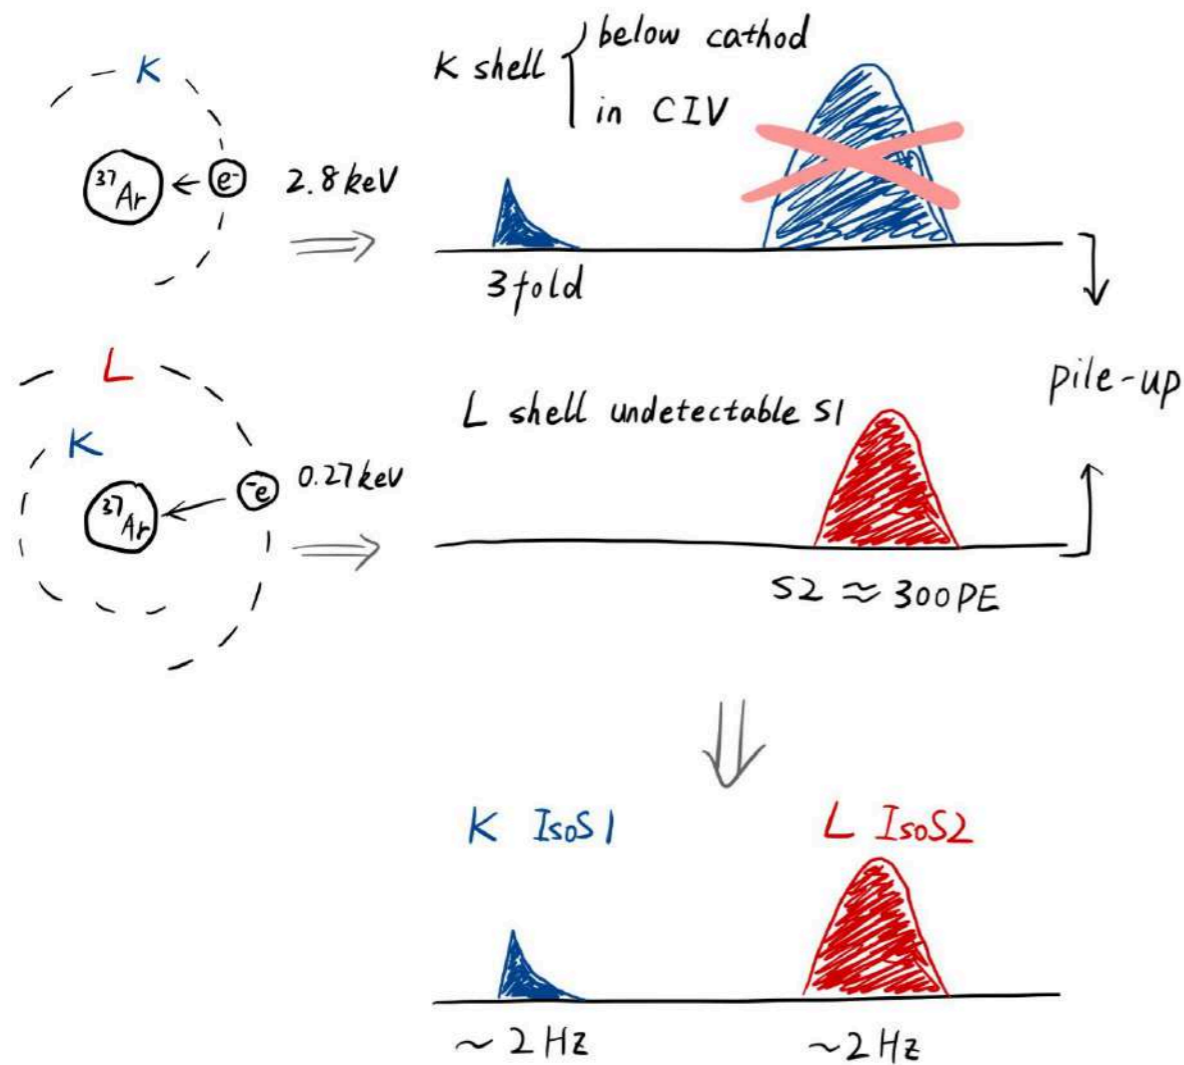 K
37Ar
e-
2.8 keV
K shell
below cathod
in CIV
3 fold
L
K
37Ar
-e
0.27 keV
L shell undetectable S1
S2 ≈ 300 PE
pile-up
K IsoS1
L IsoS2
~ 2 Hz
~2 Hz